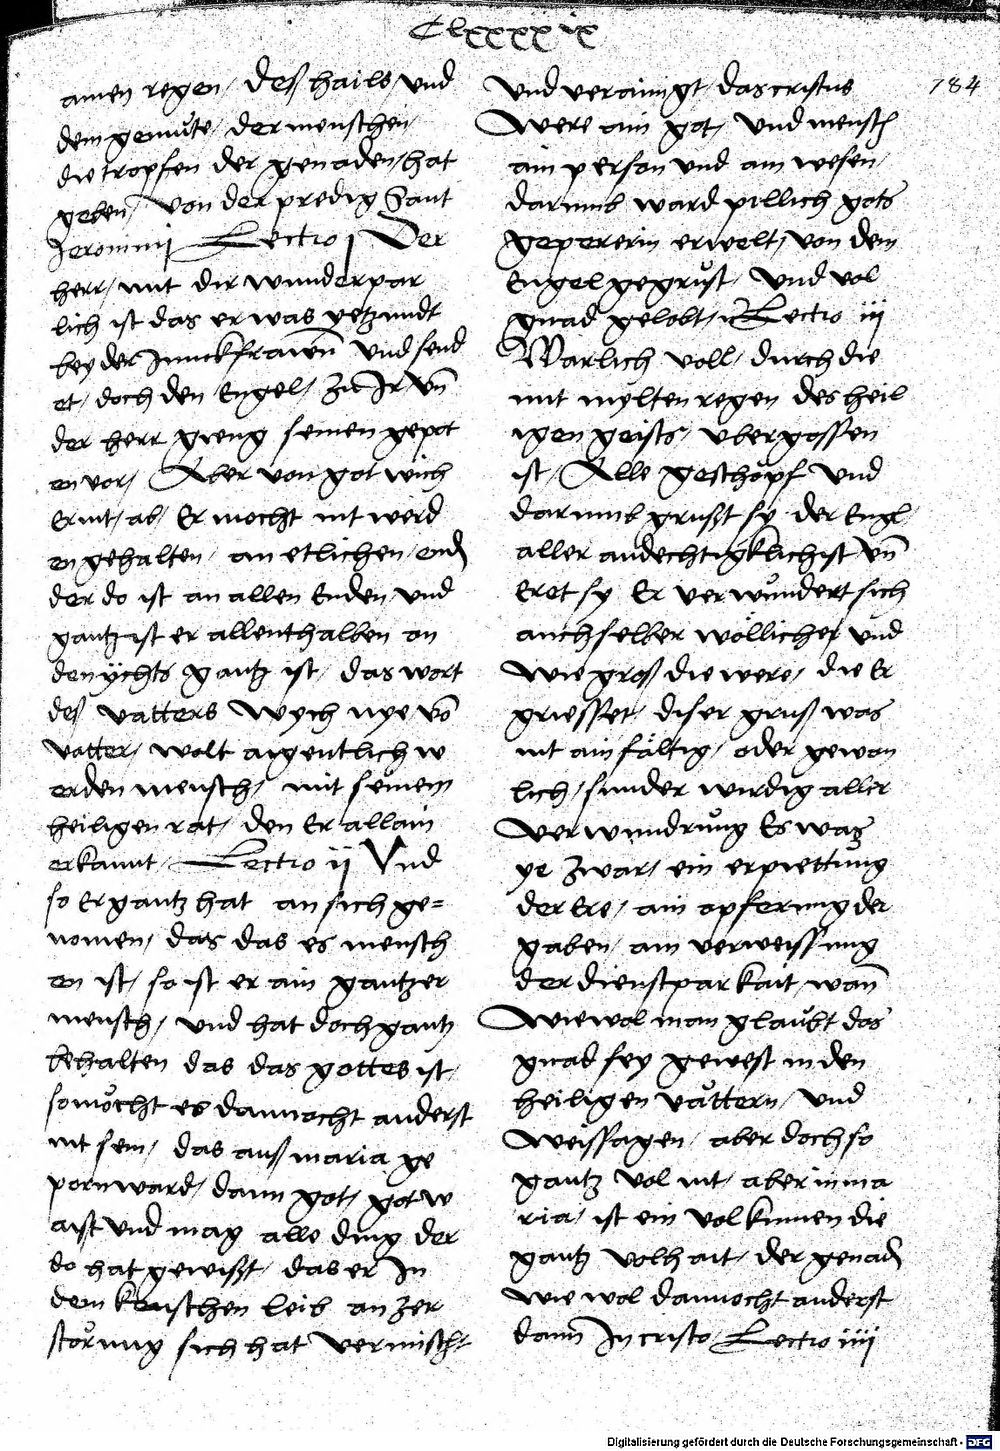 Clxxxxix
184
ainen regen / deß hails / und
dem gemúte / der menschen /
die tropfen der genaden / hat
geben / von der predig Sant
Jeronimj Lectio j Der
herr / mit dir wunderpar
lich ist das er was yetzundt
bey der Junckfrawen̄ und send
et / doch den Engel / zu Ir vn̄
der herr gieng seinen gepot
en vor / Aber von got wich
Er nit / ab / Er mocht nit werd
en gehalten / an etlichen / end
der do ist an allen Enden / und
gantz ist er allenthalben on
den ychts gantz ist / das wort
deß vatters wych nye vō
vatter / wolt aigentlich w
erden mensch / mit seinem
heiligen rat / den Er allain
erkannt / Lectio ij Vnd
so Er gantz hat an sich ge=
nomen / das das es mensch
en ist / so ist er ain gantzer
mensch / und hat doch gantz
behalten das das gottes ist /
so mocht es dannocht anderst
nit sein / das auß maria ge
porn ward / dann got / got w
aist und mag alle ding der
do hat gewißt / das er In
dem keuschen leib an zer
störung sich hat vermischt
und verainigt / das cristus
were ain got / und mensch
ain person und ain wesen /
darumb ward pillich gots
gepererin erwelt / von dem
Engel gegrúst / und vol
gnad gelobt / Lectio iij
Warlich voll / durch die
mit mylten regen des heil
igen geists / ubergossen
ist / Alle geschöpf und
darumb grußt sy der Engl /
aller andechtigklichist vn̄
Eret sy Er verwúndert sich
auch selber wöllicher und
wie groß die were / die Er
griesset / diser gruß was
nit ainfältig / oder gewon
lich / sunder wirdig aller
verwundrúng Es was
ye zwar / ein erpiettúng
der Ere / ain opferung der
gaben / ain verweissung
der dienstparkait / wan̄
wiewol man glaúbt das
gnad sey gewest in den
heiligen vättern / und
weissagen / aber doch so
gantz vol nit / aber in ma
ria / ist ein volkumen die
gantz volhait / der genad
wie wol dannocht anderst
dann In cristo / Lectio iiij
Digitalisierung gefördert durch die Deutsche Forschungsgemeinschaft - DFG